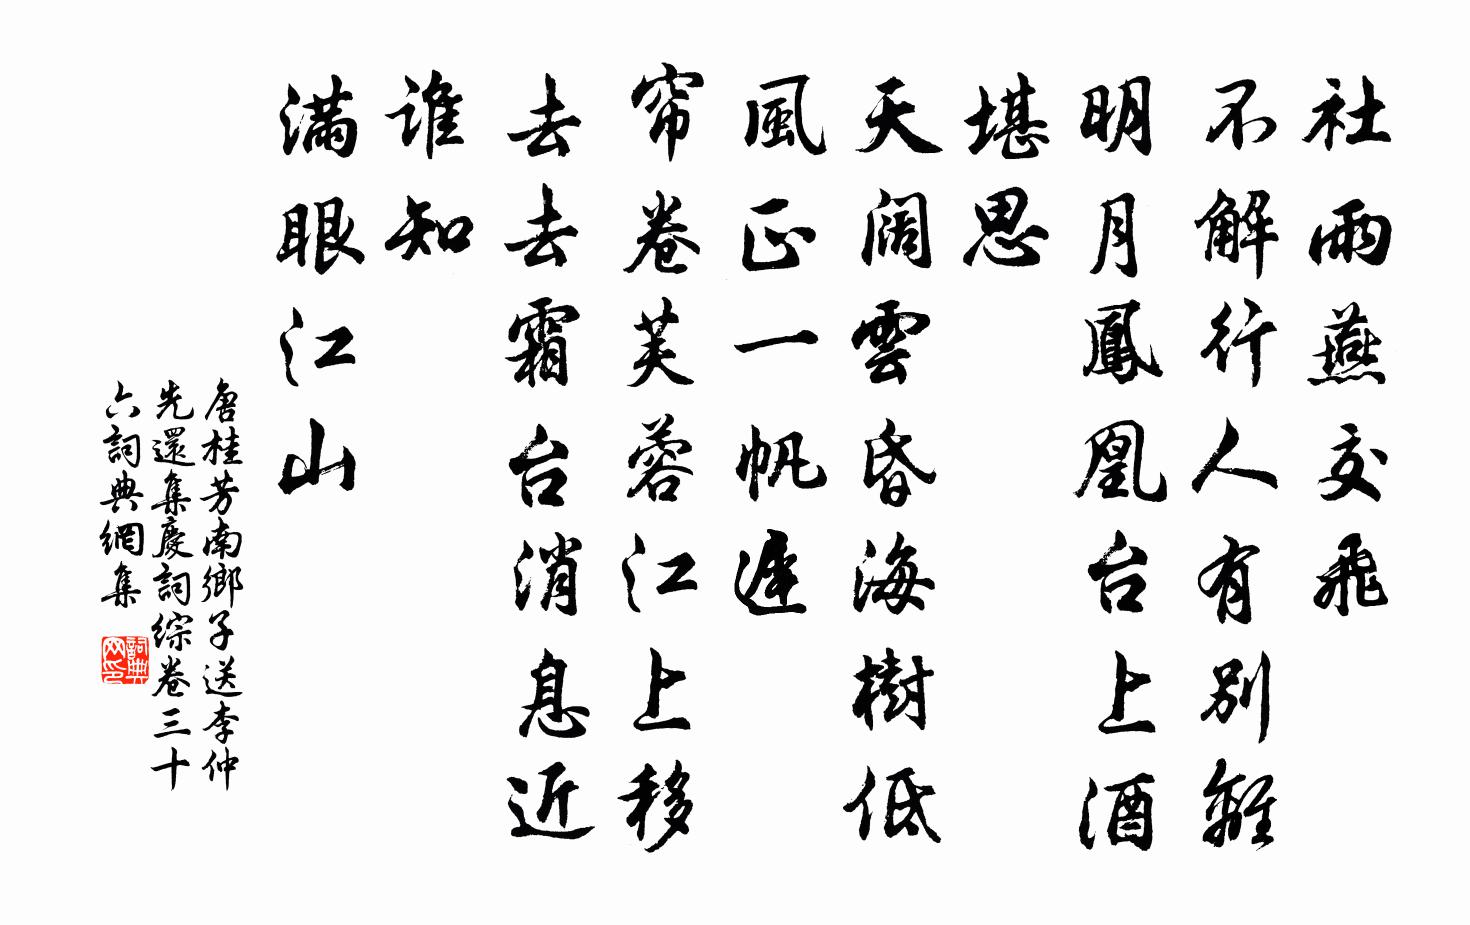 社雨燕交飛
不解行人有別離
明月鳳凰台上酒
堪思
天阔雲昏海樹低
風正一帆遲
帘卷芙蓉江上移
去去霜台消息近
谁知
满眼江山
唐桂芳南鄉子送李仲
先還集慶詞综卷三十
六詞典網集
詞典
网印